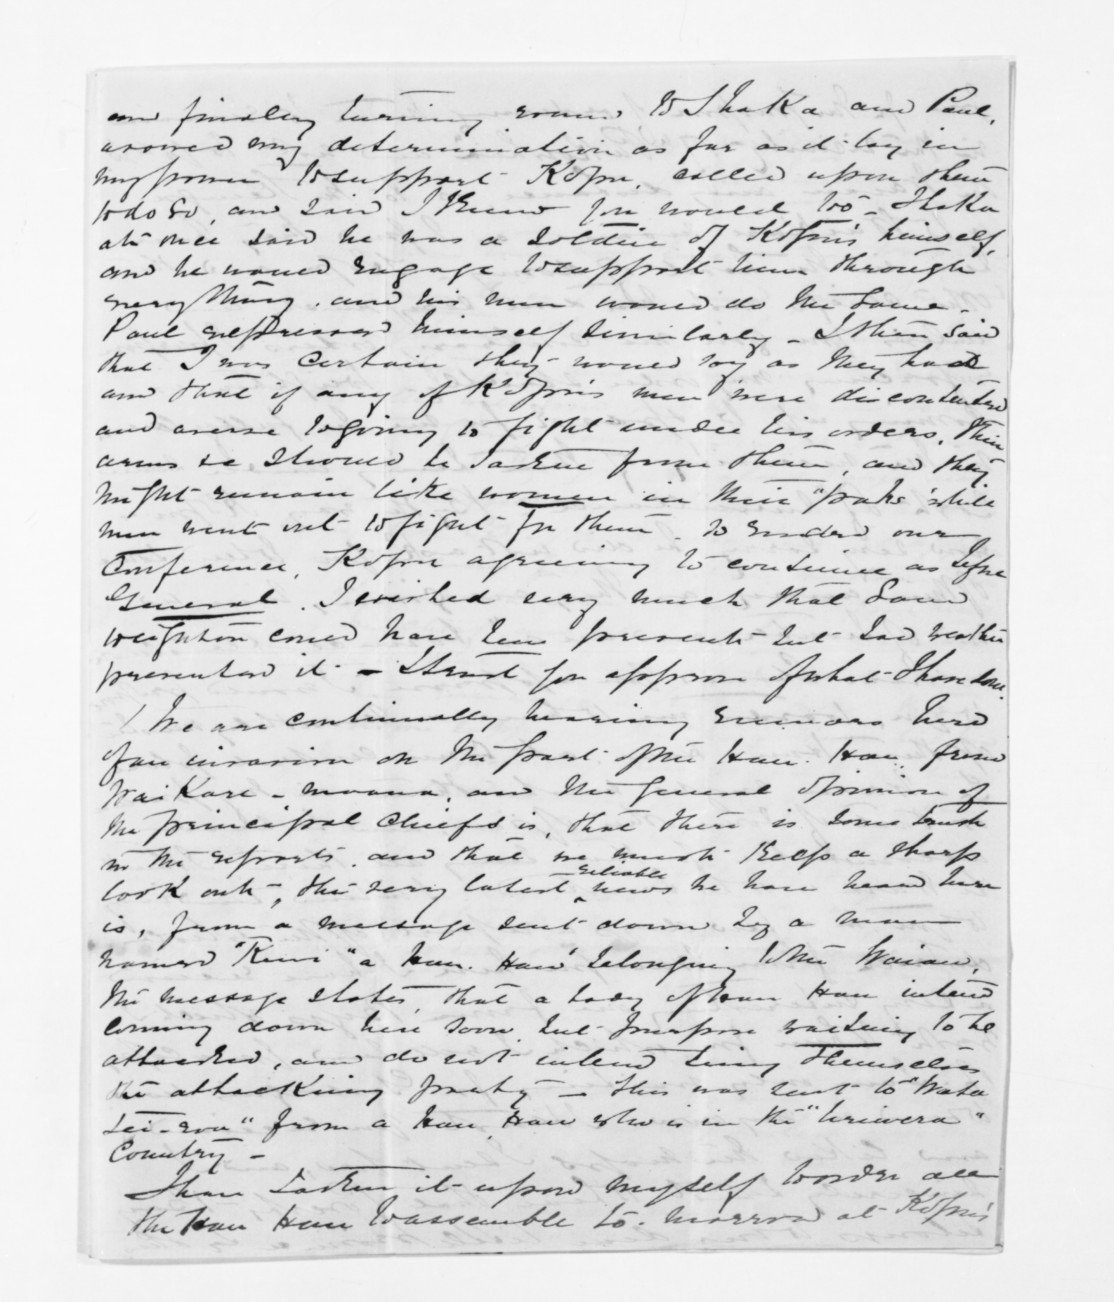 and finally turning round to Ihaka and Paul,
avowed my determination as far as it lay in
my power to support Kopu, called upon them
to do so, and said I knew you would too - Ihaka
at once said he was a soldier of Kopu's himself,
and he would engage to support him through
everything, and his men would do the same.
Paul expressed himself similarly - I then said
that I was certain they would say as they had
and that if any of Kopu's men were discontented
and averse to going to fight under his orders, their
arms &c should be taken from them, and they
might remain like women in their "pahs" while
men went out to fight for them. So ended our
Conference, Kopu agreeing to continue as before
General. I wished very much that Some
weight on could have been present but bad weather
prevented it - I trust you approve of what I have done.
We are continually hearing rumours here
of an invasion on the part of the Hau Hau from
Wai Kare - moana, and the general opinion of
the principal Chiefs is, that there is some truth
in the reports, and that we must keep a sharp
look out, the very latest reliable news we have heard here
is, from a message sent down by a man
named "Kiwi" a Hau Hau belonging to the Wairau,
the message states that a body of Hau Hau intend
coming down here soon but propose waiting to be
attacked, and do not intend being themselves
the attacking party - this was sent to "Wata
" from a Hau Hau who is in the "Uriwera"
Country -
I have taken it upon myself to order all
the Hau Hau to assemble to-morrow at Kopu's